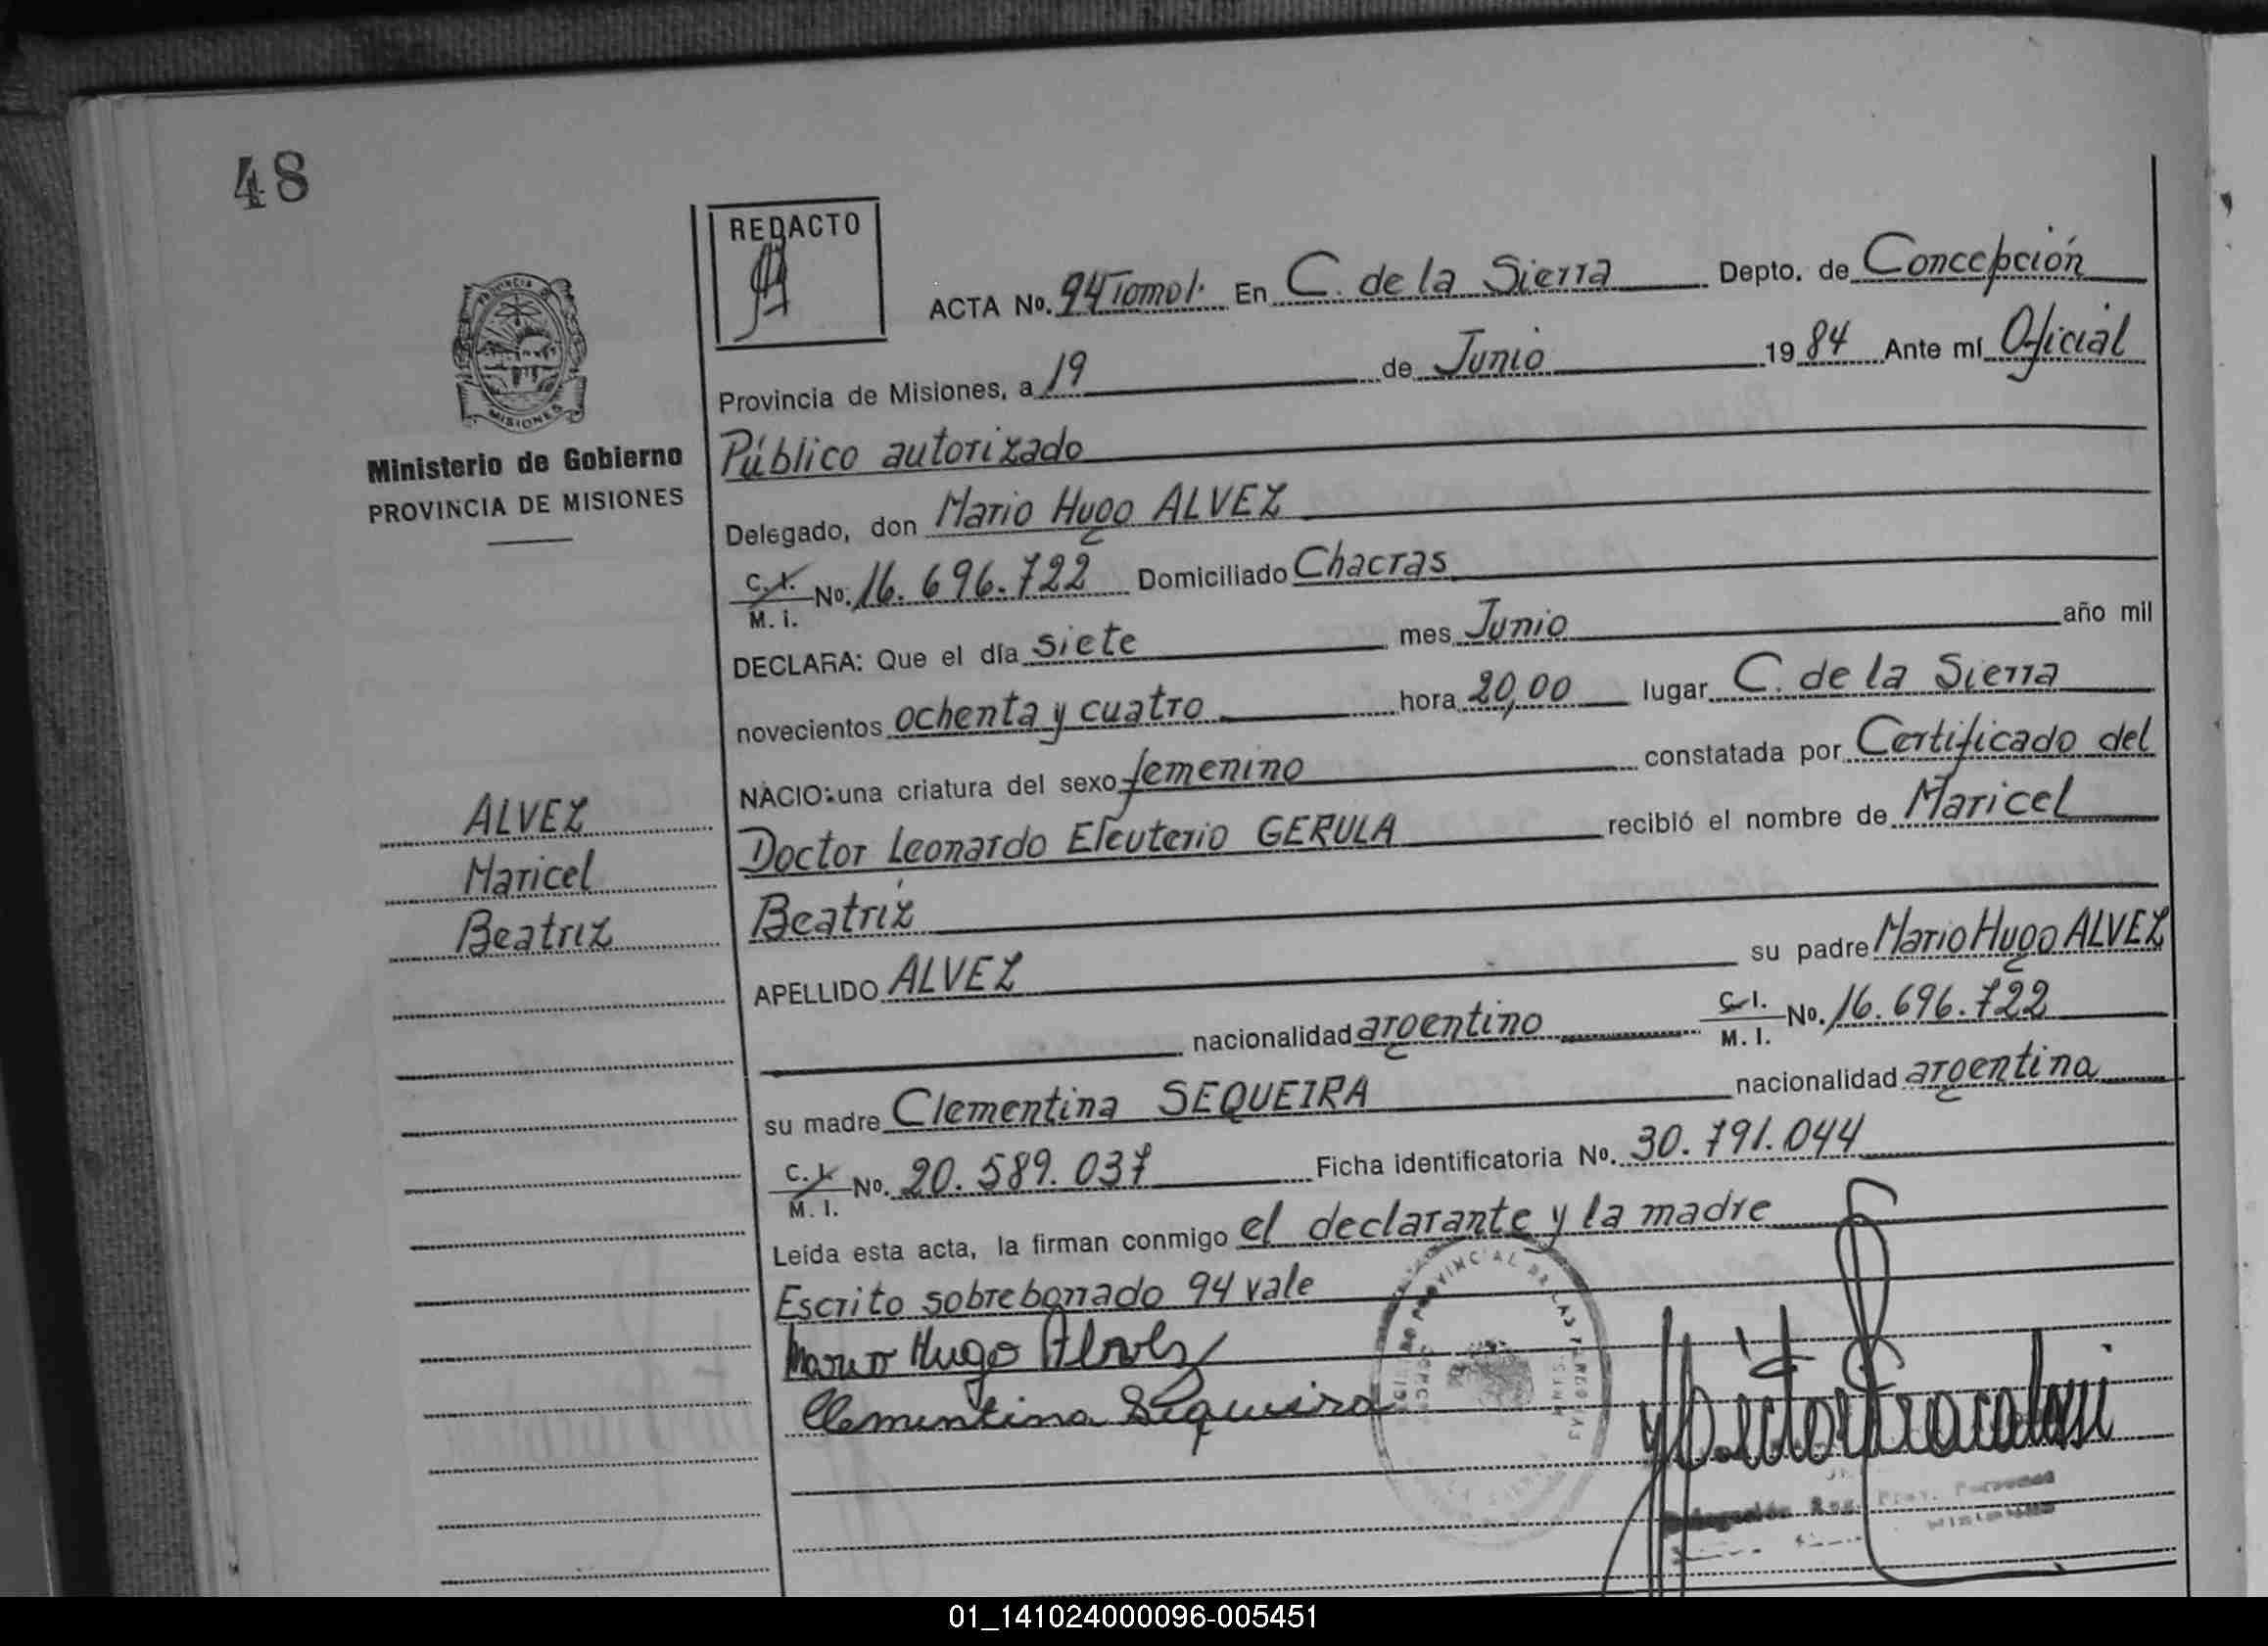 48
REDACTO
ACTA No. 94 Tomo I. En C. de la Sierra Depto. de Concepción
Provincia de Misiones, a 19 de Junio 1984 Ante mí Oficial
Público autorizado
Delegado, don Mario Hugo ALVEZ
C.I. M.i. No. 16.696.722 Domiciliado Chacras
DECLARA: Que el día siete mes Junio año mil
novecientos ochenta y cuatro hora 20,00 lugar C. de la Sierra
NACIO: una criatura del sexo femenino constatada por Certificado del
Doctor Leonardo Eleuterio GERULA recibió el nombre de Maricel
Beatriz
APELLIDO ALVEZ su padre Mario Hugo ALVEZ
nacionalidad argentino C.I. M.I. No. 16.696.722
su madre Clementina SEQUEIRA nacionalidad argentina
C.I. M.I. No. 20.589.037 Ficha identificatoria No. 30.791.044
Leída esta acta, la firman conmigo el declarante y la madre
Escrito sobreborrado 94 vale
Mario Hugo Alvez
Clementina Sequeira
PROVINCIA DE
MISIONES
Ministerio de Gobierno
PROVINCIA DE MISIONES
ALVEZ
Maricel
Beatriz
01_141024000096-005451